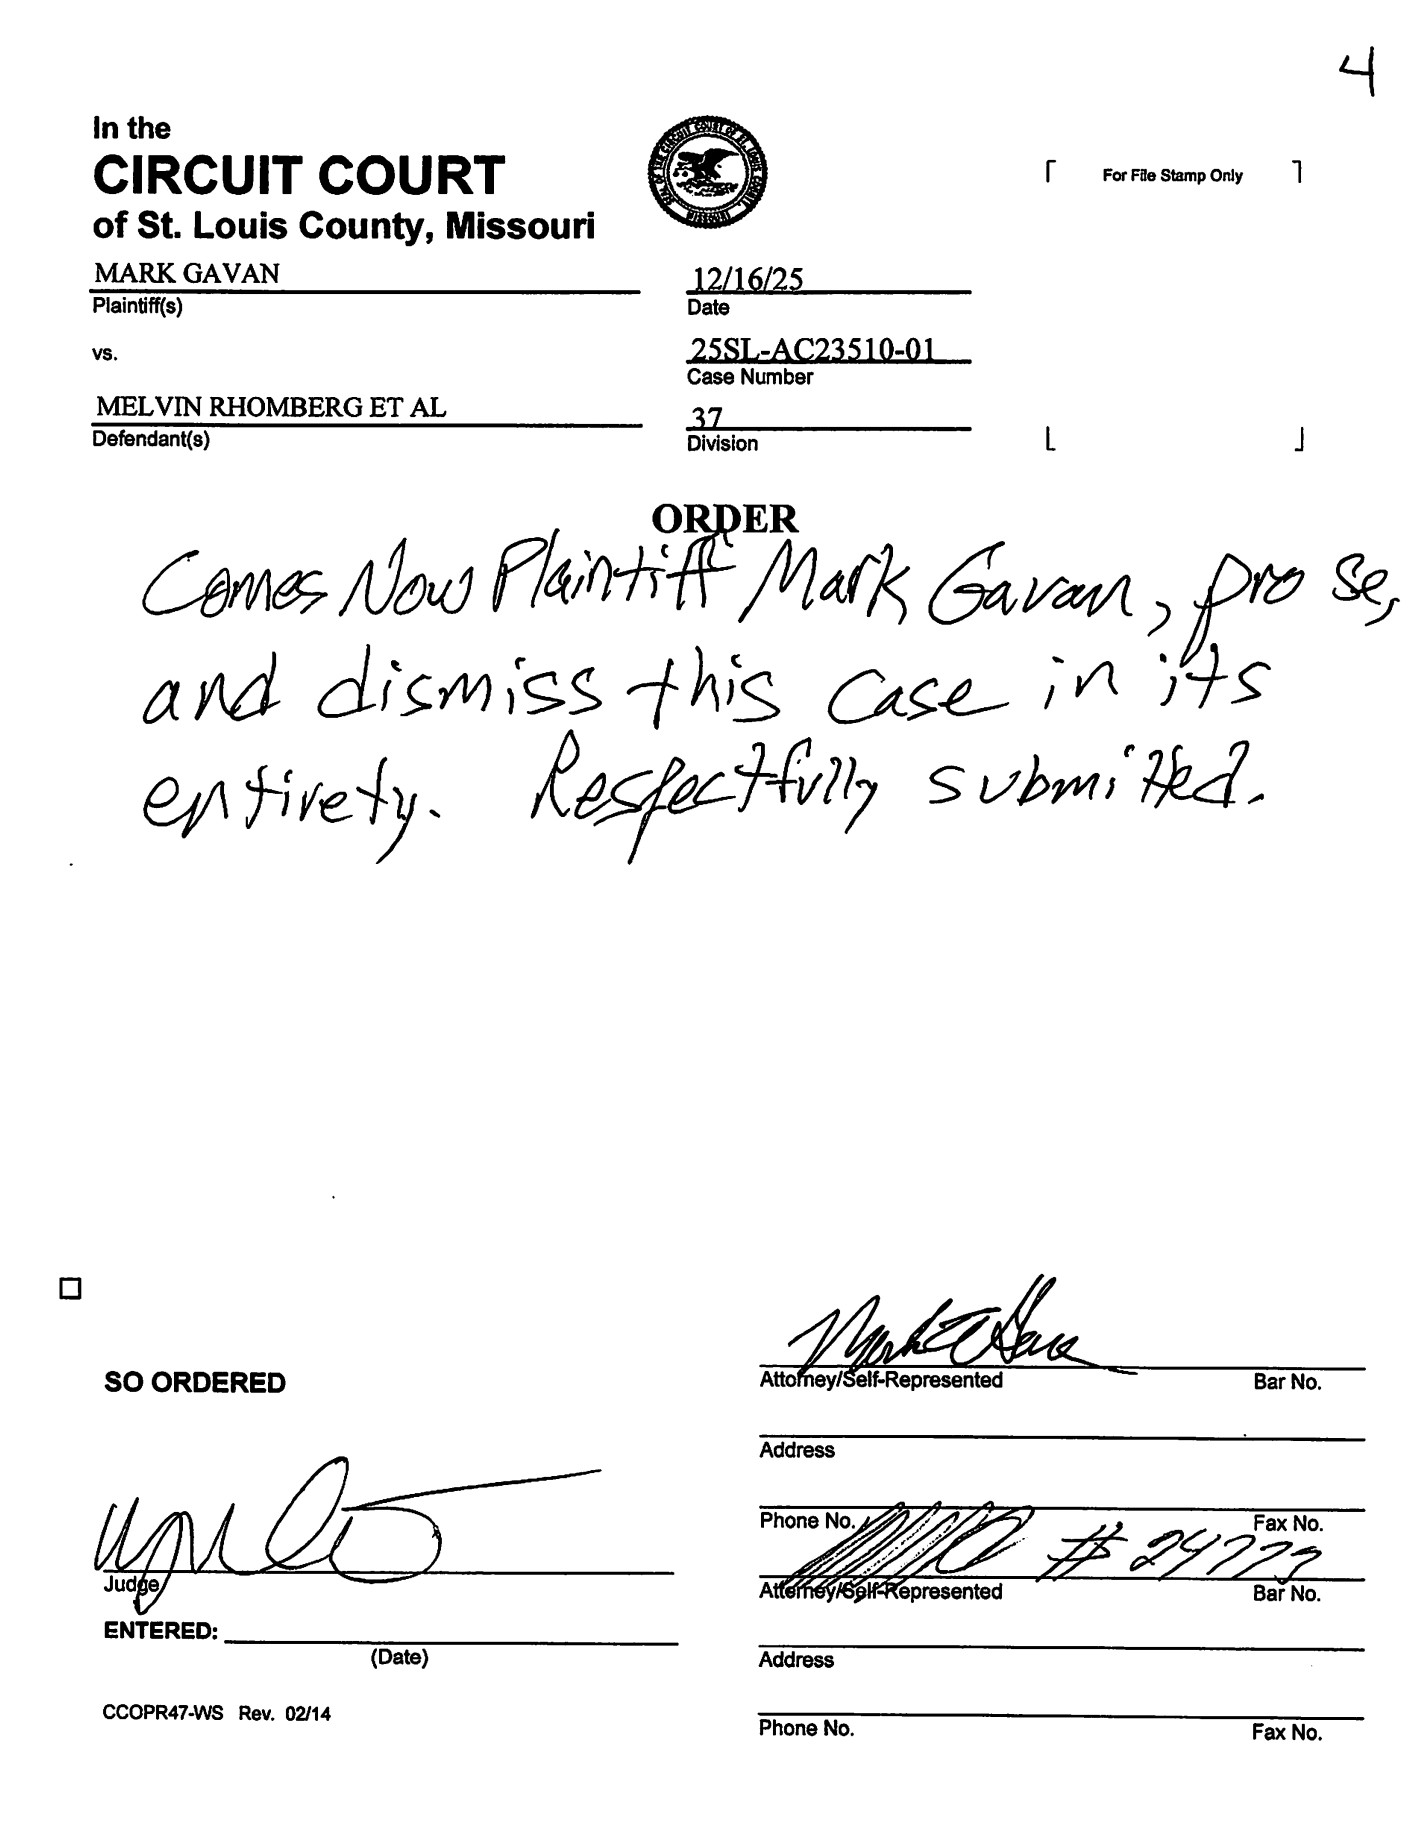 4
In the
CIRCUIT COURT
of St. Louis County, Missouri
SEAL OF THE CIRCUIT COURT OF ST. LOUIS COUNTY, MISSOURI
For File Stamp Only
MARK GAVAN
Plaintiff(s)
12/16/25
Date
vs.
25SL-AC23510-01
Case Number
MELVIN RHOMBERG ET AL
Defendant(s)
37
Division
ORDER
Comes Now Plaintiff Mark Gavan, pro se,
and dismiss this case in its
entirety. Respectfully submitted.
SO ORDERED
Judge
ENTERED:
(Date)
CCOPR47-WS Rev. 02/14
Mark
Attorney/Self-Represented Bar No.
Address
Phone No. Fax No.
# 24773
Attorney/Self-Represented Bar No.
Address
Phone No. Fax No.